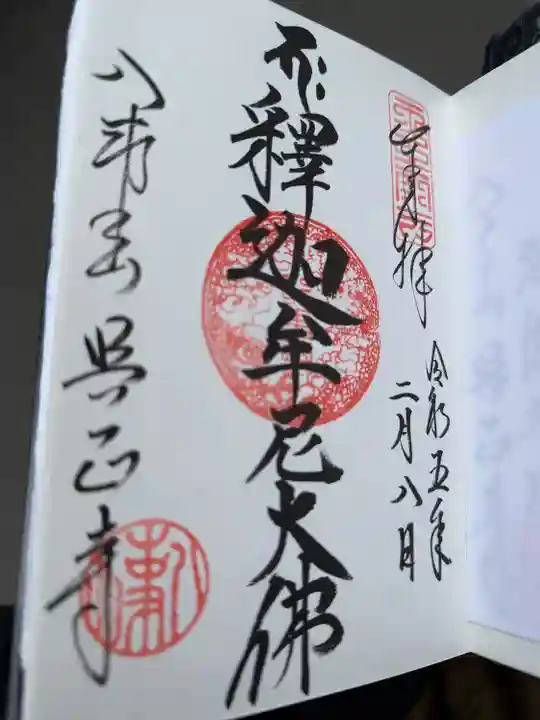 奉拝
令和五年
二月八日
釋迦牟尼大佛
八事山興正寺